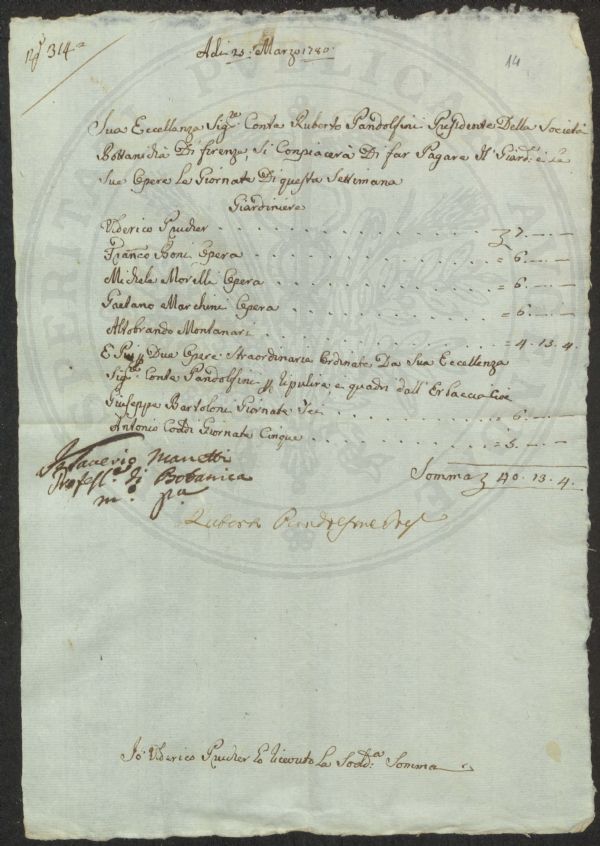 N.º 314
Adi 25: Marzo 1780:
14
Sua Eccellenza Sig.re Conta Ruberto Pandolfini Presidente Della Società
Bottanicha Di firenze, Si Conpiacerà Di far Pagare Il Giard.e e Le
Sue Opere Le Giornate Di questa Settimana
Giardiniere
Ulderico Prucher . . . . . . . . . . 7. — . —
Franco Boni Opera . . . . . . . . . = 6. — . —
Michele Morelli Opera . . . . . . . . = 6. — . —
Gaetano Marchini Opera . . . . . . . . = 6. — . —
Aldobrando Montanari . . . . . . . . = 4. 13. 4
E Più Due Opere Straordinarie Ordinate Da Sua Eccellenza
Sig.re Conte Pandolfini p ripulire e quadri dall' Erbaccia Cioe
Giuseppe Bartoloni Giornate Sei . . . . = 6. — . —
Antonio Coddi Giornate Cinque . . . . = 5. — . —
Saverio Manetti
Profess.e di Botanica
m.o p.a
Somma 40. 13. 4.
Ruberto Pandolfini Pres
Io Ulderico Prucher ho ricevuto La Sodd.a Somma
PVBLICAE